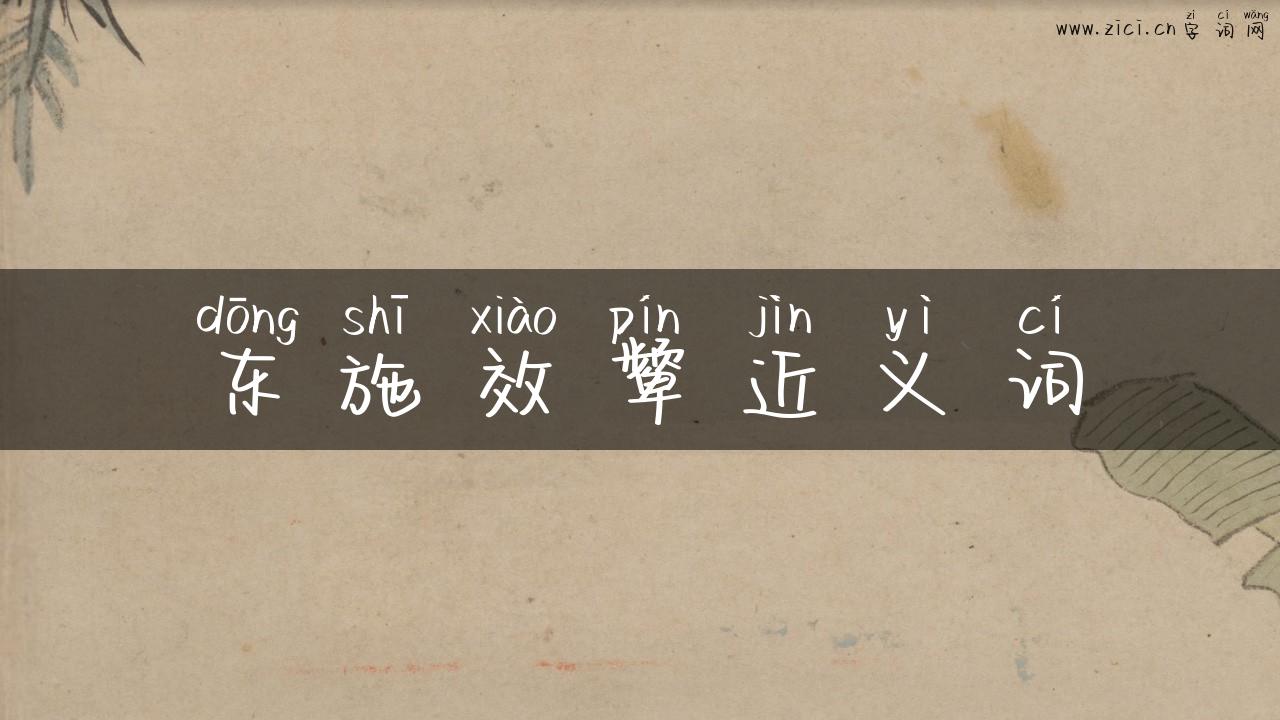 zì cí wǎng
www.zici.cn 字词网
dōng shī xiào pín jìn yì cí
东施效颦近义词